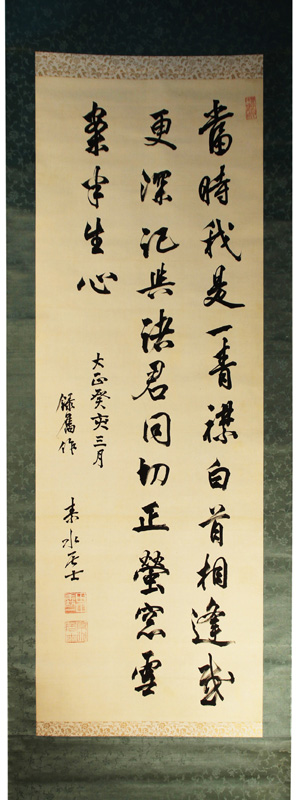 當時我是一青襟白首相逢感
更深記與諸君同切正螢窓雪
案半生心
大正癸亥三月
錄舊作
水居士